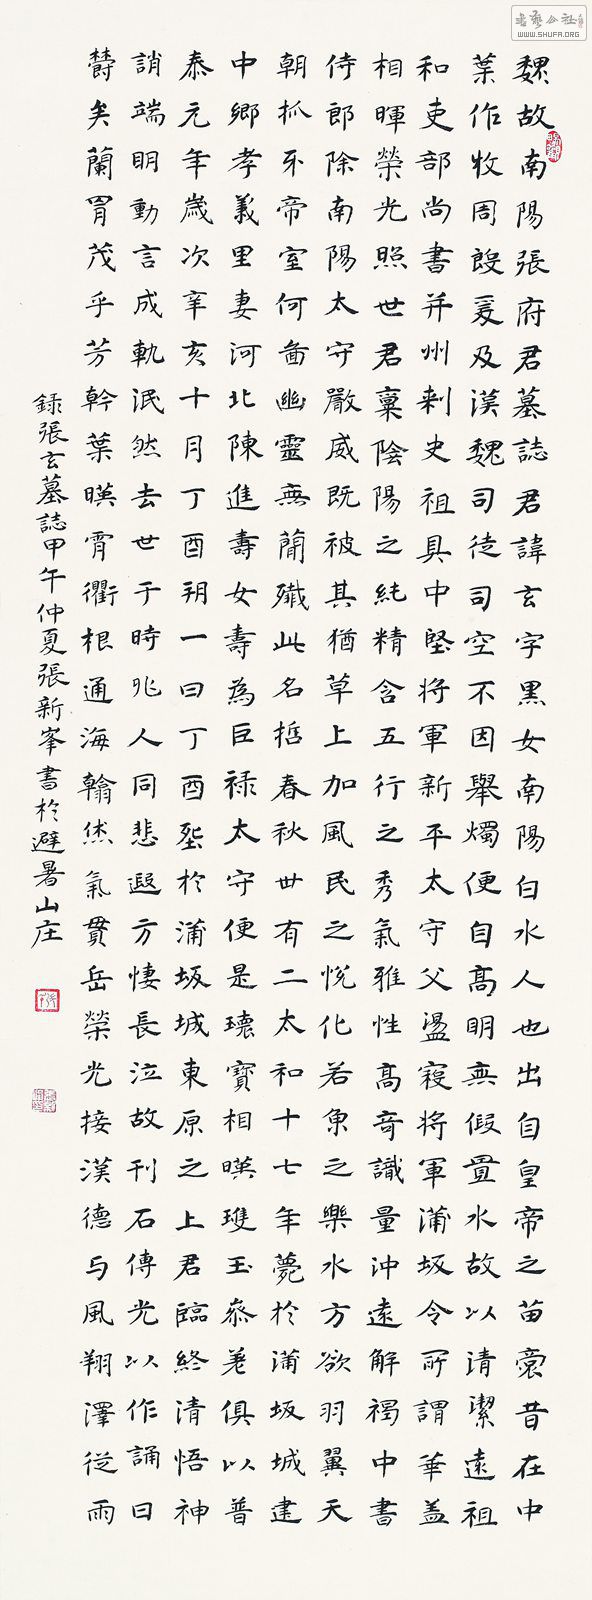 魏故南陽張府君墓誌君諱玄字黑女南陽白水人也出自皇帝之苗裔昔在中
葉作牧周殷爰及漢魏司徒司空不因舉燭便自高明無假置水故以清潔遠祖
和吏部尚書并州刺史祖具中堅將軍新平太守父盪寇將軍蒲坂令所謂華蓋
相暉榮光照世君稟陰陽之純精含五行之秀氣雅性高奇識量沖遠解褐中書
侍郎除南陽太守嚴威既被其猶草上加風民之悅化若魚之樂水方欲羽翼天
朝抓牙帝室何圖幽靈無蕳殲此名哲春秋卅有二太和十七年薨於蒲坂城建
中鄉孝義里妻河北陳進壽女壽為巨祿太守便是瓌寶相暎瓊玉參差俱以普
泰元年歲次辛亥十月丁酉朔一日丁酉塟於蒲坂城東原之上君臨終清悟神
誚端明動言成軌泯然去世于時兆人同悲遐方悽長泣故刊石傳光以作誦曰
欝矣蘭冑茂乎芳幹葉暎霄衢根通海翰烋氣貫岳榮光接漢德与風翔澤從雨
錄張玄墓誌甲午仲夏張新峯書於避暑山庄
書藝公社
WWW.SHUFA.ORG